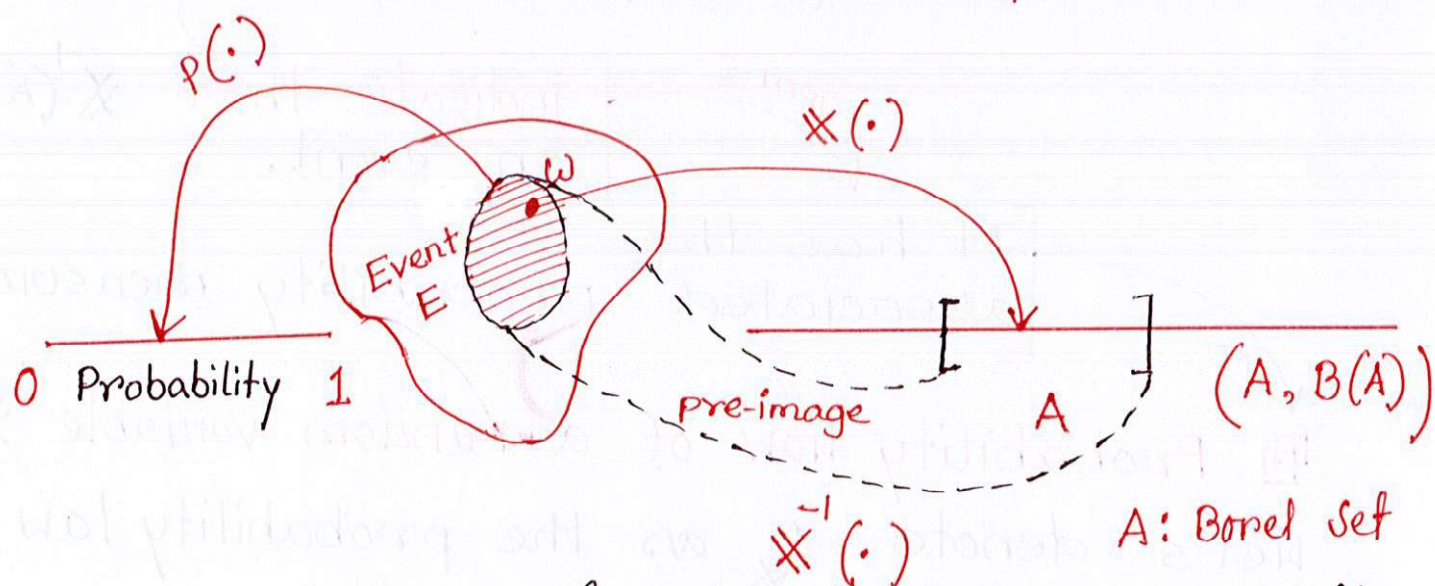 P(·)
𝕏(·)
ω
Event
E
0 Probability 1
pre-image
A
(A, B(A))
𝕏⁻¹(·)
A: Borel Set